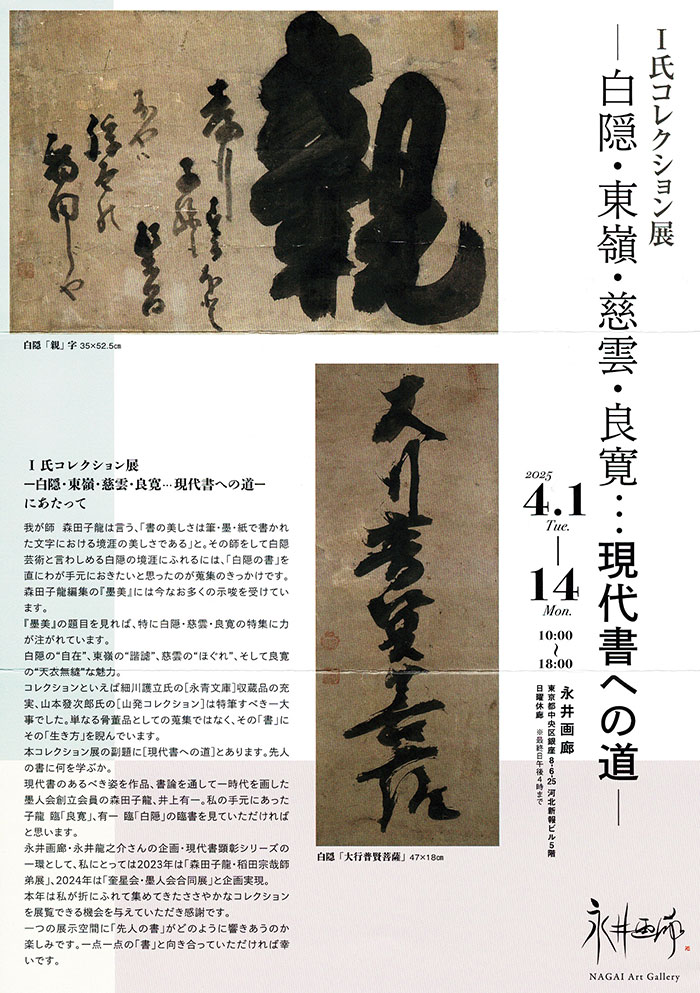 I氏コレクション展
―白隠・東嶺・慈雲・良寛…現代書への道―
白隠「親」字 35×52.5㎝
親
大行普賢菩薩
白隠「大行普賢菩薩」47×18㎝
2025
4.1
Tue.
14
Mon.
10:00
〜
18:00
永井画廊
東京都中央区銀座8-6-25 河北新報ビル5階
日曜休廊 ※最終日午後4時まで
I 氏コレクション展
―白隠・東嶺・慈雲・良寛…現代書への道―
にあたって
我が師 森田子龍は言う、「書の美しさは筆・墨・紙で書かれ
た文字における境涯の美しさである」と。その師をして白隠
芸術と言わしめる白隠の境涯にふれるには、「白隠の書」を
直にわが手元におきたいと思ったのが蒐集のきっかけです。
森田子龍編集の『墨美』には今なお多くの示唆を受けてい
ます。
『墨美』の題目を見れば、特に白隠・慈雲・良寛の特集に力
が注がれています。
白隠の“自在”、東嶺の“諧謔”、慈雲の“ほぐれ”、そして良寛
の“天衣無縫”な魅力。
コレクションといえば細川護立氏の[永青文庫]収蔵品の充
実、山本發次郎氏の[山発コレクション]は特筆すべき一大
事でした。単なる骨董品としての蒐集ではなく、その「書」に
その「生き方」を睨んでいます。
本コレクション展の副題に[現代書への道]とあります。先人
の書に何を学ぶか。
現代書のあるべき姿を作品、書論を通して一時代を画した
墨人会創立会員の森田子龍、井上有一。私の手元にあった
子龍 臨「良寛」、有一 臨「白隠」の臨書を見ていただければ
と思います。
永井画廊・永井龍之介さんの企画・現代書顕彰シリーズの
一環として、私にとっては2023年は「森田子龍・稲田宗哉師
弟展」、2024年は「奎星会・墨人会合同展」と企画実現。
本年は私が折にふれて集めてきたささやかなコレクション
を展覧できる機会を与えていただき感謝です。
一つの展示空間に「先人の書」がどのように響きあうのか
楽しみです。一点一点の「書」と向き合っていただければ幸
いです。
永井画廊
NAGAI Art Gallery